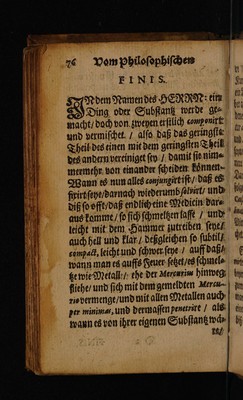 76 Vom Philosophischen
FINIS.
IN dem Namen des HERRN: ein
Ding oder Substantz werde ge-
macht / doch von zweyen erstlich componirt
und vermischet / also daß das geringste
Theil des einen mit dem geringsten Theil
des andern vereiniget sey / damit sie nim-
mermehr von einander scheiden können.
Wann es nun alles conjungirt ist / daß es
fixirt seye / darnach wiederumb solvirt / und
diß so offt / daß endlich eine Medicin dar-
aus komme / so sich schmeltzen lasse / und
leicht mit dem Hammer zutreiben seye /
auch hell und klar / deßgleichen so subtil /
compact, leicht und schwer seye / auff daß /
wann man es auffs Feuer setzet / es schmel-
tze wie Metall / ehe der Mercurius hinweg
fliehe / und sich mit dem gemeldten Mercu-
rio vermenge / und mit allen Metallen auch
per minimas, und dermassen penetrire / als
wann es von ihrer eigenen Substantz wä-
re /